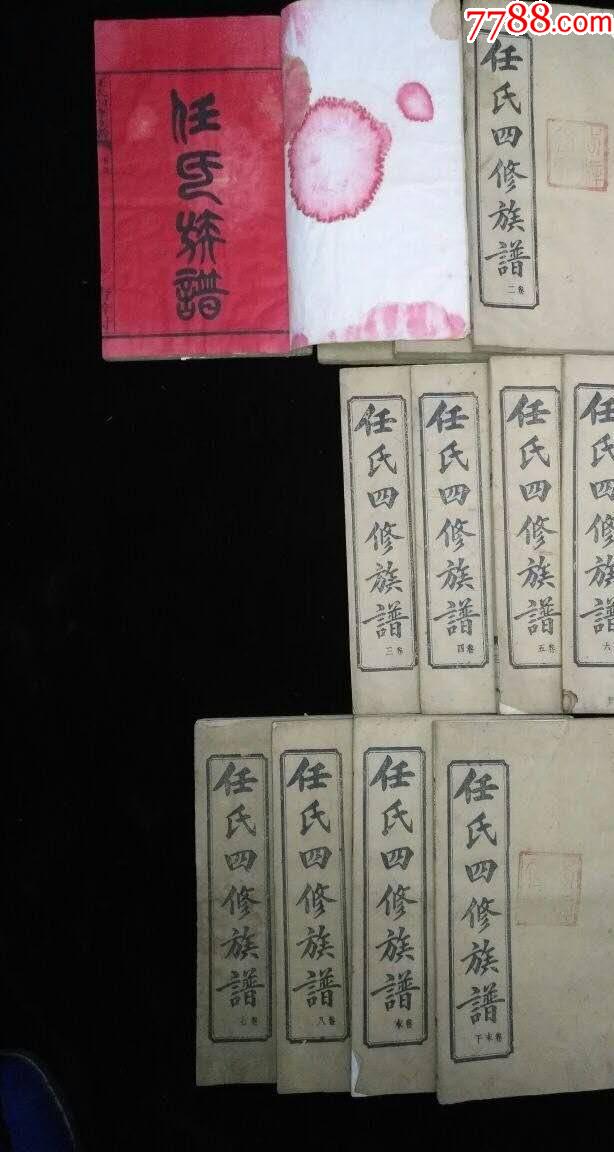 7788.com
任氏族譜
任氏四修族譜
卷二
任氏四修族譜
卷三
任氏四修族譜
卷四
任氏四修族譜
卷五
任氏四修族譜
六
任氏四修族譜
卷七
任氏四修族譜
卷八
任氏四修族譜
卷末
任氏四修族譜
卷末下